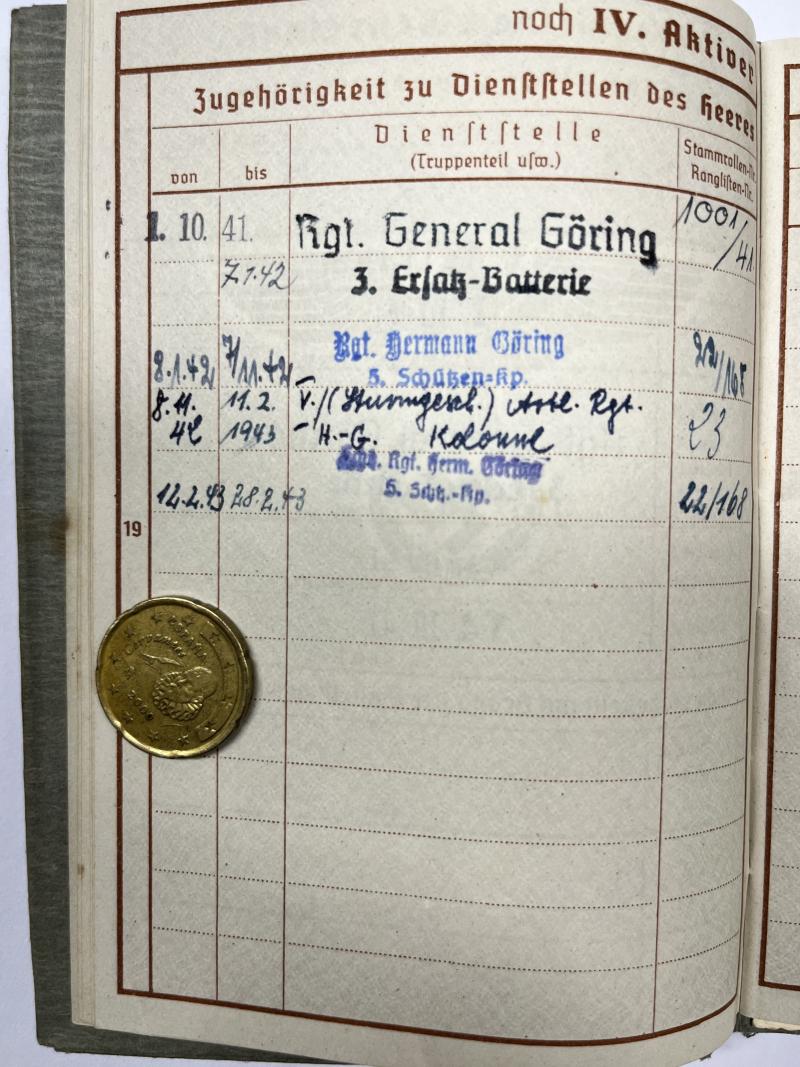 noch IV. Aktiver
Zugehörigkeit zu Dienststellen des Heeres
von
bis
Dienststelle
(Truppenteil usw.)
Stammrollen-Nr.
Ranglisten-Nr.
1. 10. 41. Rgt. General Göring 1001/41
7.1.42 3. Ersatz-Batterie
8.1.42 7/11.42 Rgt. Hermann Göring 22/168
5. Schützen-Kp.
8.11. 11.2. V./(Sturmgesch.) Artl. Rgt. 23
42 1943 H.-G. Kolonne
Rgt. Herm. Göring
12.2.43 28.2.43 5. Schtz.-Kp. 22/168
19
España
Cervantes
M 2000